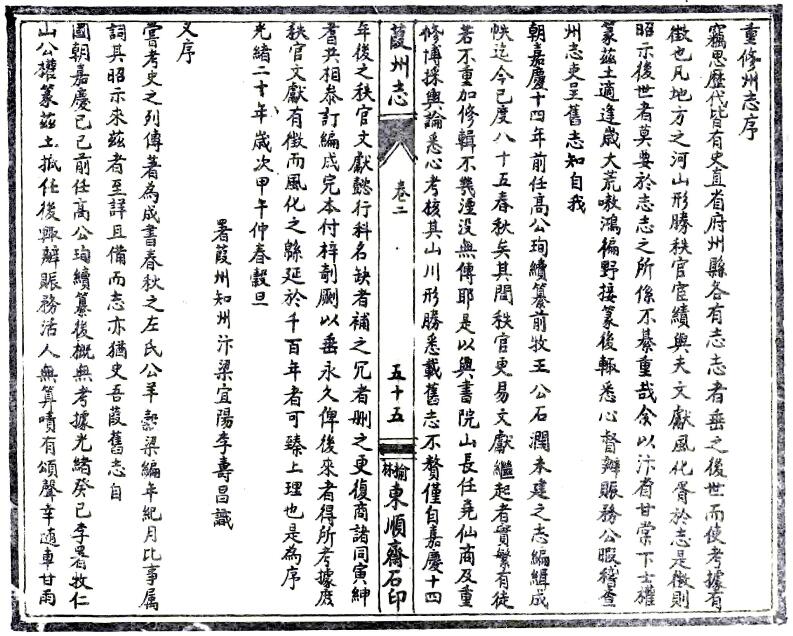 重修州志序
竊思歷代皆有史直省府州縣各有志志者垂之後世而使考據有
徵也凡地方之河山形勝秩官宦績與夫文獻風化胥於志是徵則
昭示後世者莫要於志志之所係不綦重哉余以汴省甘棠下士權
篆茲土適逢歲大荒嗷鴻徧野接篆後輒悉心督辦賑務公暇稽查
州志吏呈舊志知自我
朝嘉慶十四年前任高公珣續纂前牧王公石潤未建之志編緝成
帙迄今已度八十五春秋矣其間秩官更易文獻繼起者實繁有徒
若不重加修輯不幾湮没無傳耶是以與書院山長任堯仙商及重
修博採輿論悉心考核其山川形勝悉載舊志不贅僅自嘉慶十四
葭州志
卷二
五十五
榆林東順齋石印
年後之秩官文獻懿行科名缺者補之冗者删之更復商諸同寅紳
耆共相叅訂編成完本付梓剞劂以垂永久俾後來者得所考據庻
秩官文獻有徵而風化之緜延於千百年者可臻上理也是為序
光緒二十年歲次甲午仲春穀旦
署葭州知州汴梁宜陽李壽昌識
又序
嘗考史之列傳著為成書春秋之左氏公羊穀梁編年紀月比事属
詞其昭示來茲者至詳且備而志亦猶史吾葭舊志自
國朝嘉慶己巳前任高公珣續纂後概無考據光緒癸巳李署牧仁
山公權篆茲土抵任後興辦賑務活人無算嘖有頌聲幸隨車甘雨